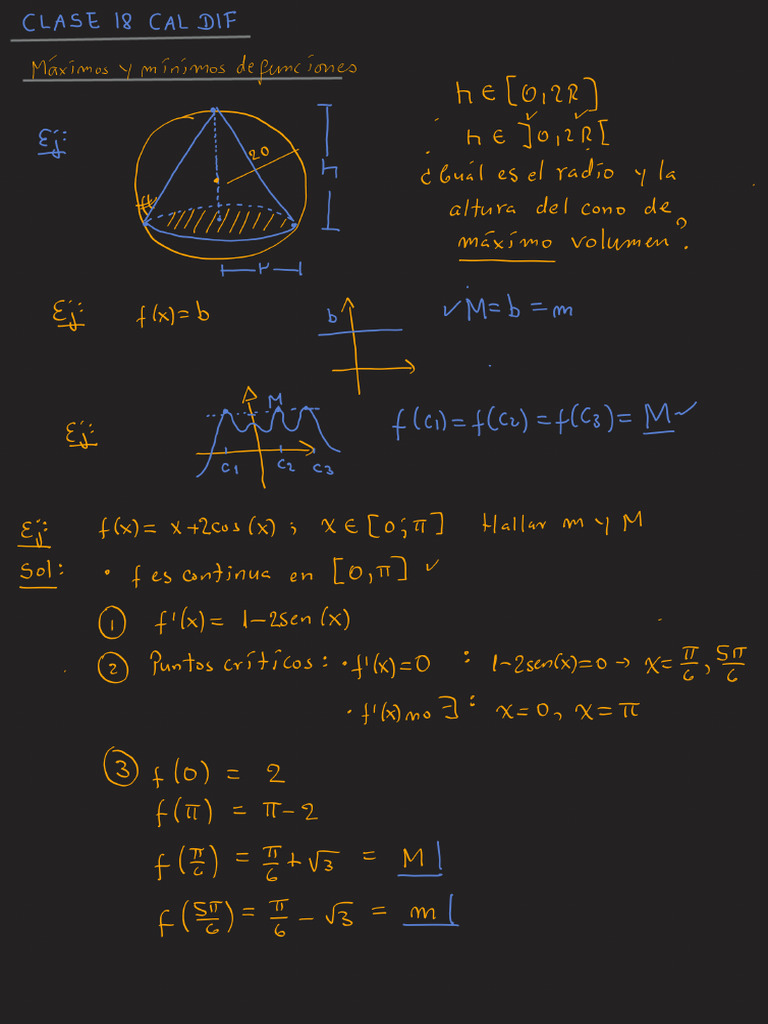 CLASE 18 CAL DIF
Máximos y mínimos de funciones
Ej:
20
h
r
h ∈ [0,2R]
h ∈ ]0,2R[
¿Cuál es el radio y la
altura del cono de
máximo volumen?
Ej:
f(x)=b
b
✓M=b=m
Ej:
M
C1 C2 C3
f(C1)=f(C2)=f(C3)=M✓
Ej: f(x)= x+2cos(x) ; x∈[0;π] Hallar m y M
Sol: • f es continua en [0,π] ✓
① f'(x)= 1-2sen(x)
② Puntos críticos: • f'(x)=0 : 1-2sen(x)=0 → x=π/6, 5π/6
• f'(x) no ∃ : x=0, x=π
③ f(0) = 2
f(π) = π-2
f(π/6) = π/6+√3 = M|
f(5π/6)=π/6-√3 = m|